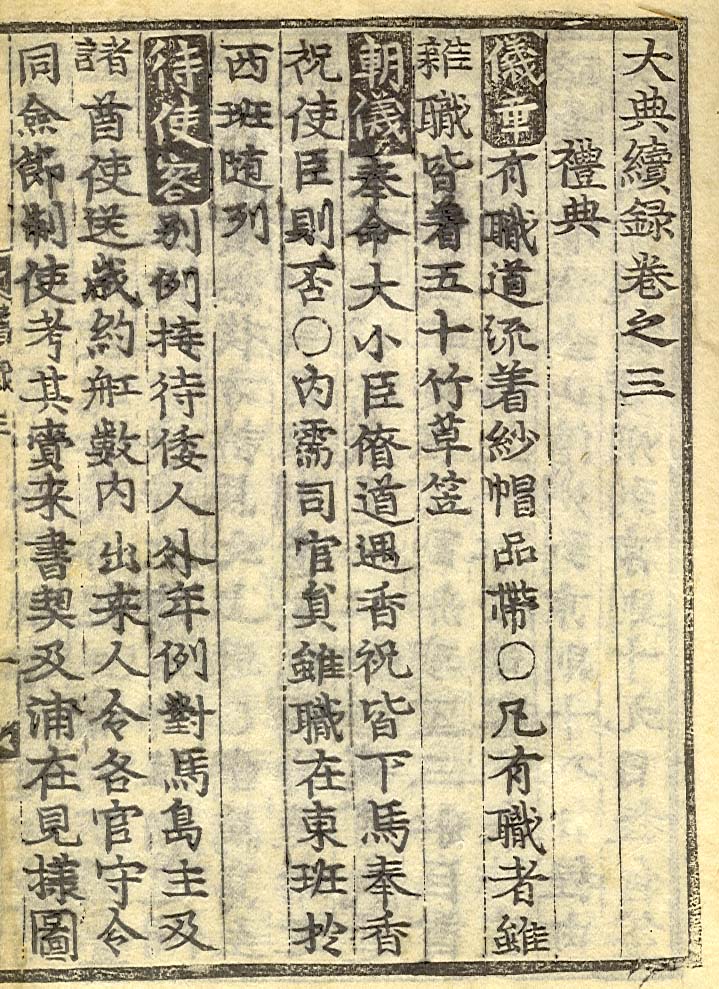 大典續録卷之三
禮典
儀車 有職道流着紗帽品帶〇凡有職者雖
雜職皆着五十竹草笠
朝儀 奉命大小臣僚道遇香祝皆下馬奉香
祝使臣則否〇內需司官負雖職在東班扵
西班随列
待使客 別例接待倭人外年例對馬島主及
諸酋使送歲約舡數內出来人令各官守令
同僉節制使考其賫来書契及浦在見㨾圖